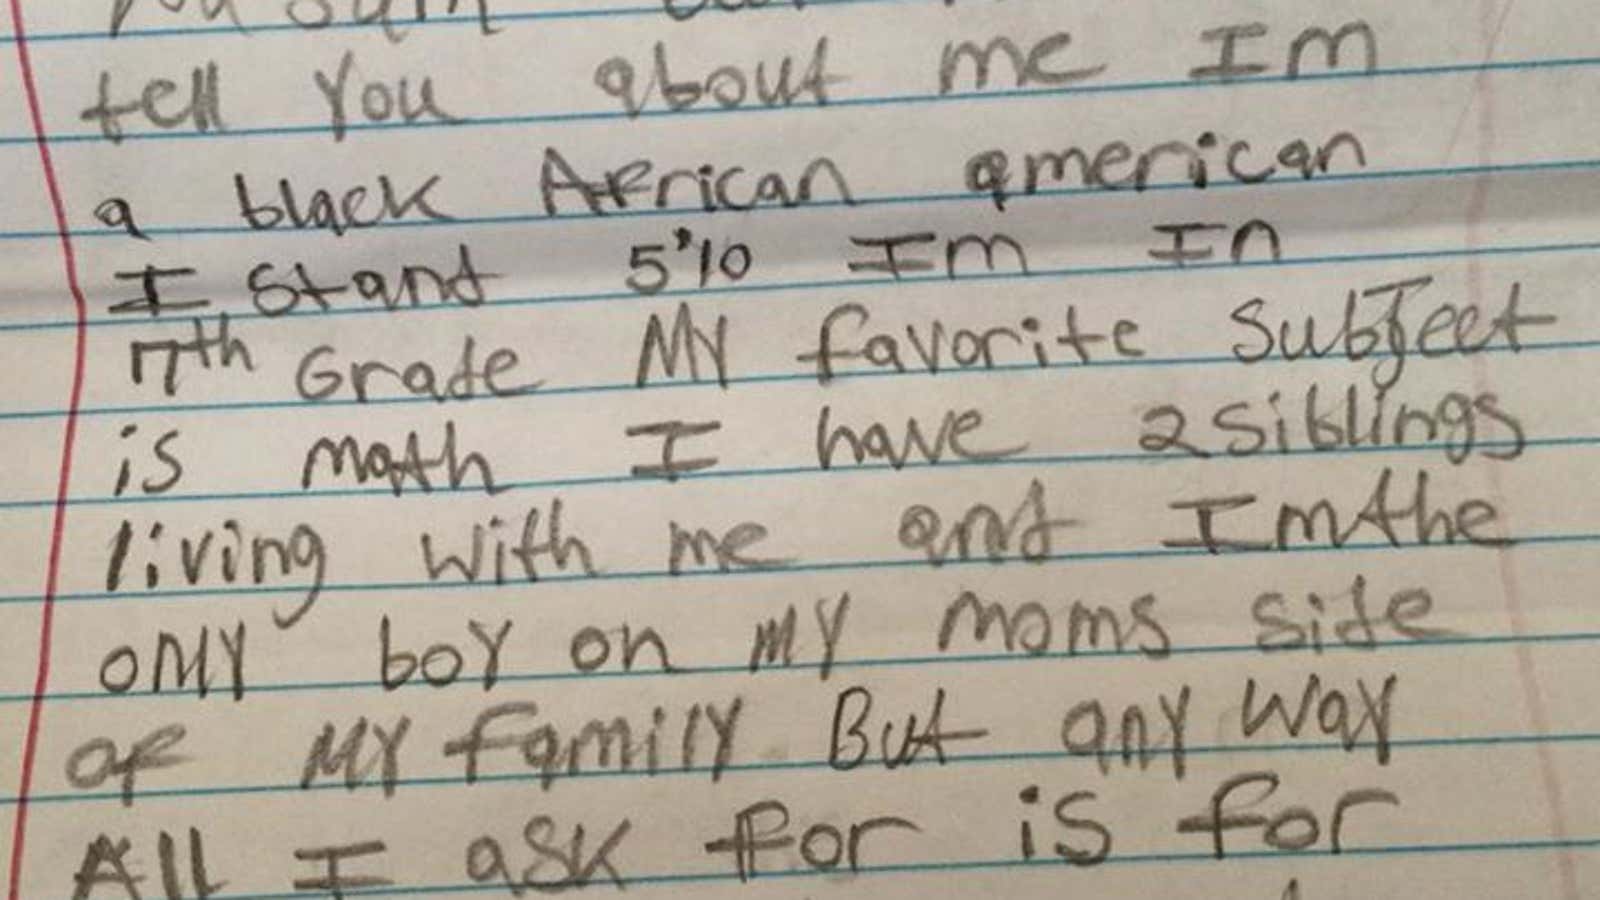 tell You about me Im
a black African american
I Stand 5'10 Im In
7th Grade MY favorite SubJect
is math I have 2 siblings
living with me and Im the
onlY boY on MY moms side
of MY familY But anY waY
All I ask for is for